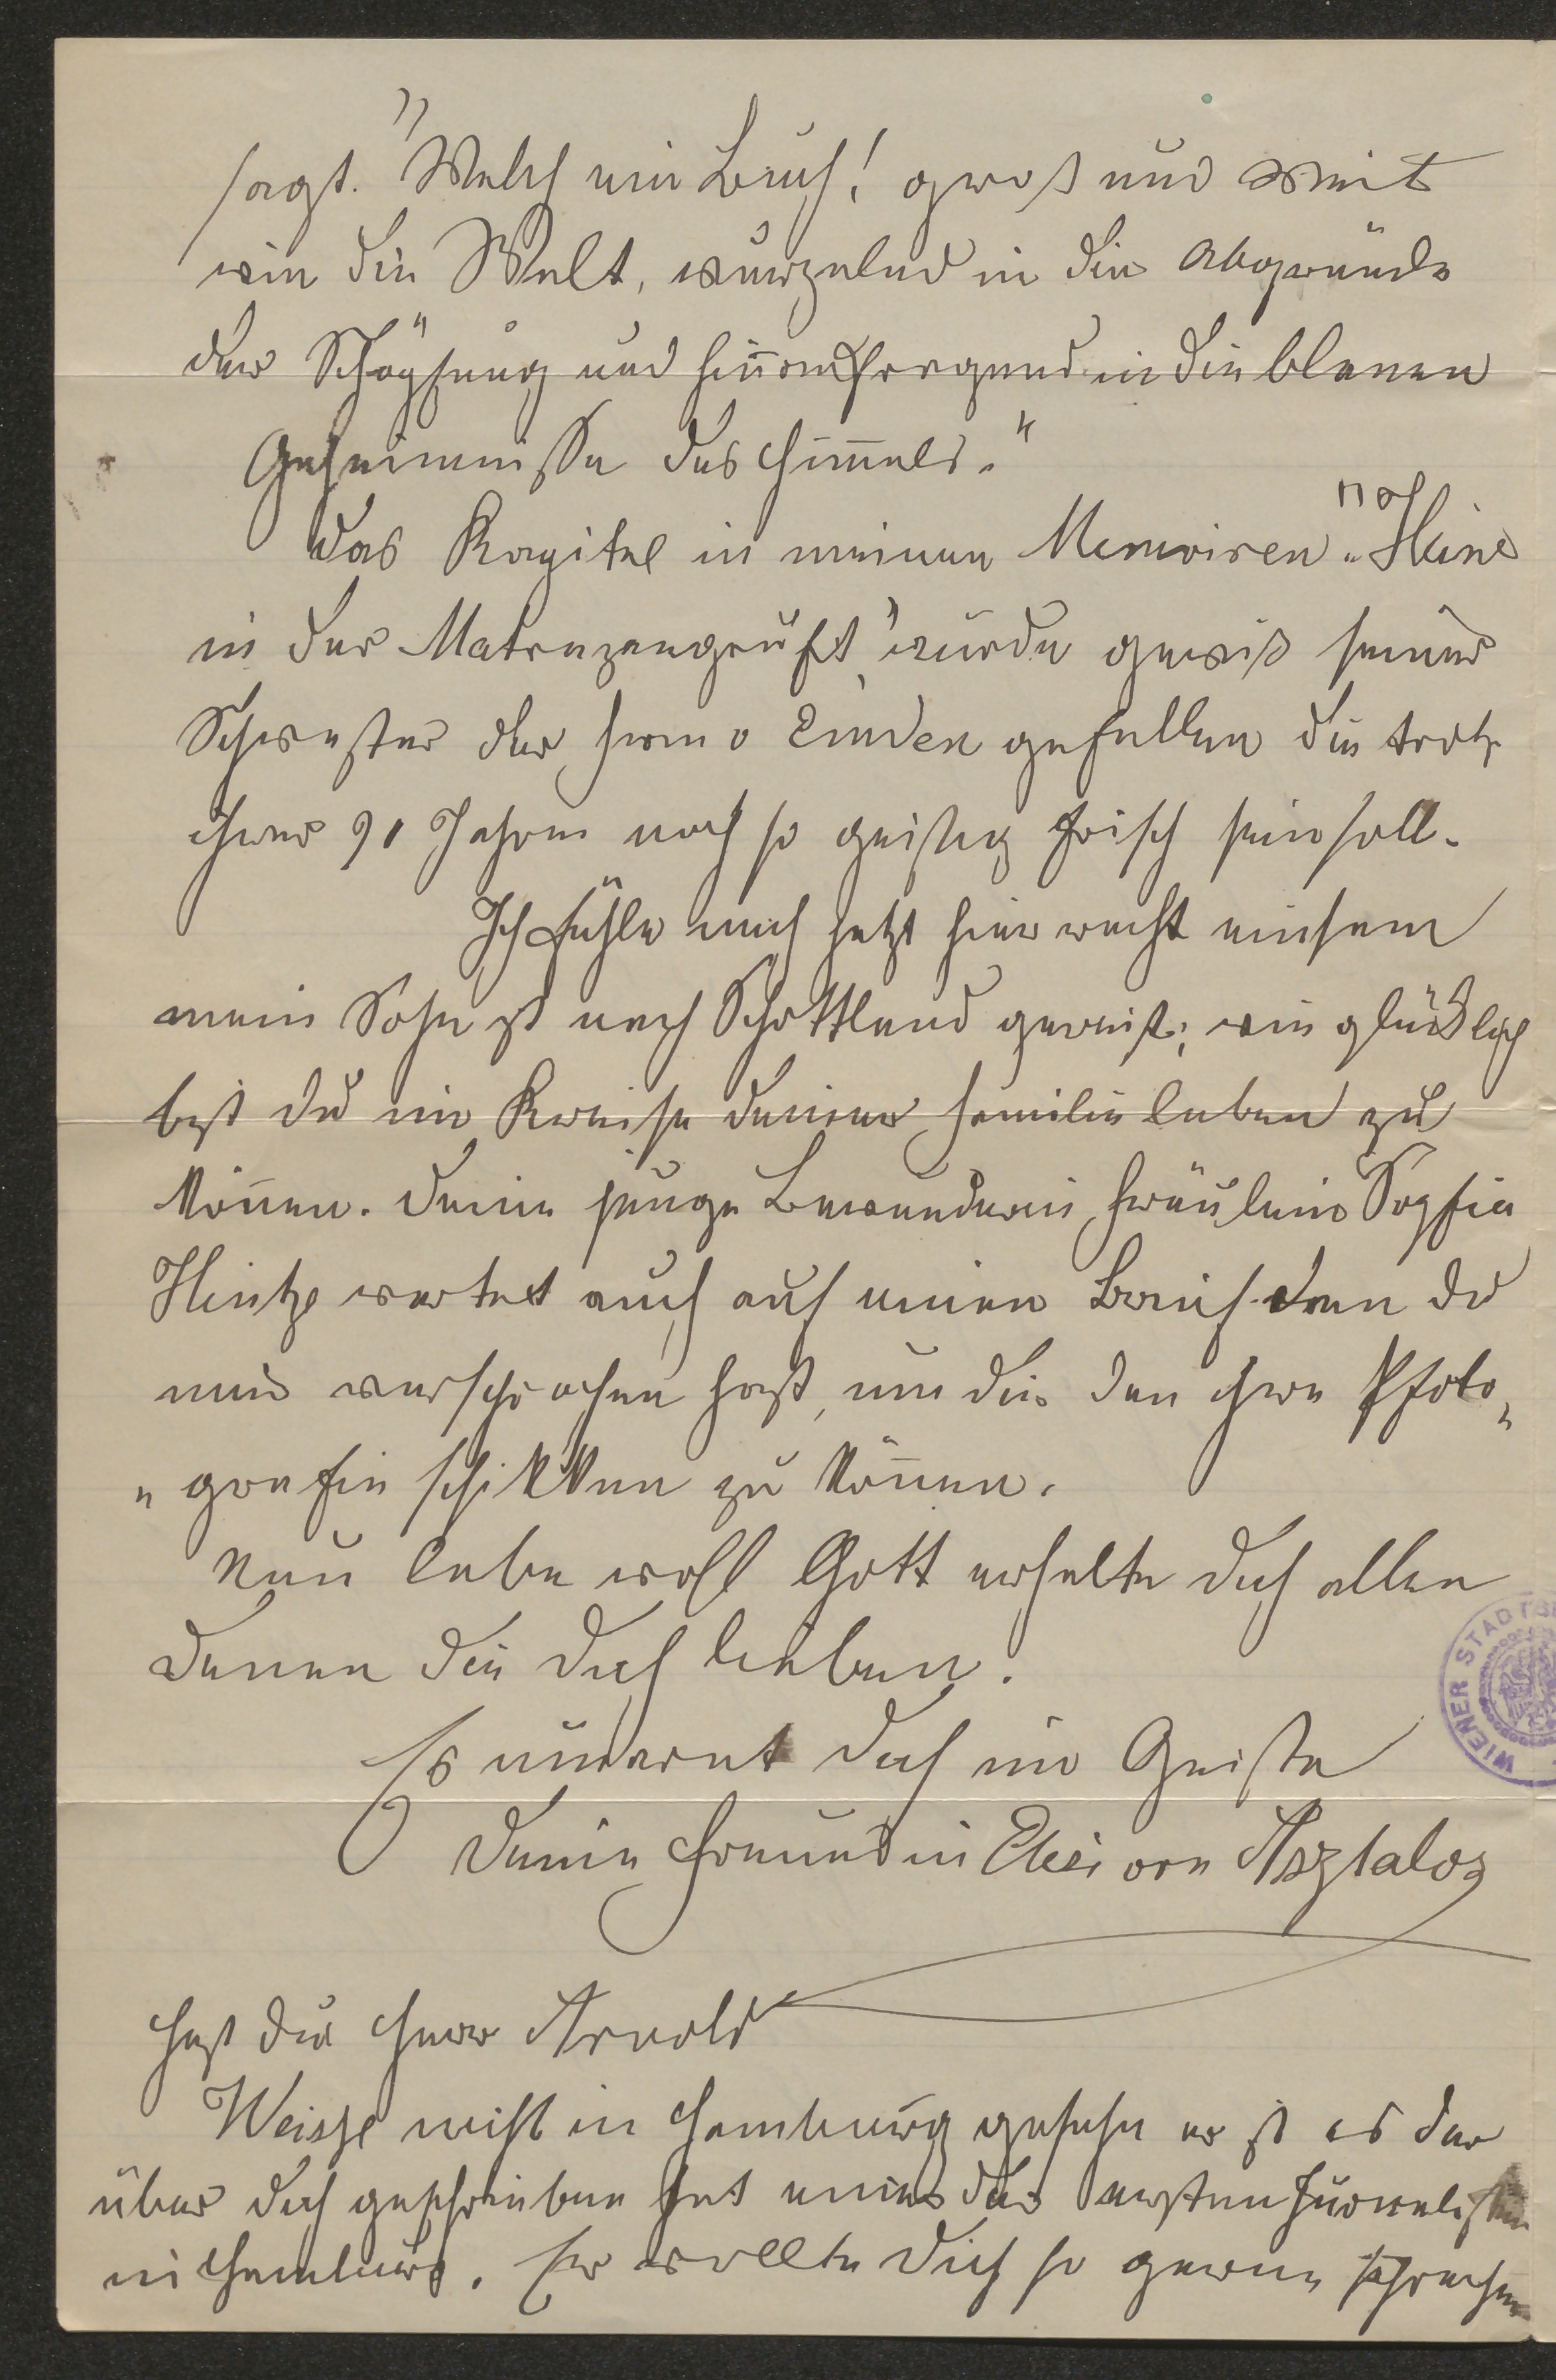 sagt. „Welch ein Buch! gros und weit
wie die Welt, wurzelnd in die Abgründe
der Schöpfung und hinaufragend in die blauen
Geheimnisse des Himels."
Das Kapitel in meinen Memoiren „Heine
in der Matrazengruft" würde gewiß seiner
Schwester der Frau v Emden gefallen die trotz
ihrer 91 Jahren noch so geistig frisch sein soll.
Ich fühle mich jetzt hier recht einsam
mein Sohn ist nach Schottland gereist; wie glücklich
bist du im Kreise deiner Familie leben zu
könen. Deine junge Bewunderin Fräulein Sophie
Hintze wartet auch auf einen Brief den du
mir versprochen hast, um dir den ihre Photo„
„grafie schikken zu könen.
Nun lebe wohl Gott erhalte dich allen
denen die dich lieben.
Es umarmt dich im Geiste
deine Freundin Elise von Asztalos
Hast du Herr Arnold
Weisse nicht in Hamburg gesehn er ist es der
über dich geschrieben hat einer der ersten Jurnalisten
in Hamburg. Er wollte dich so gerne sprechen
WIENER STADTBI